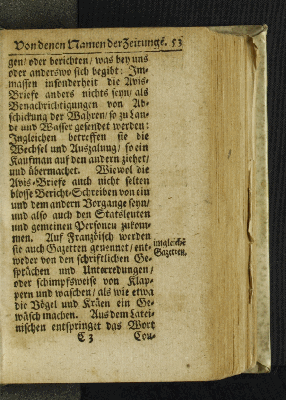 Von denen Namen der Zeitungẽ. 53
gen/ oder berichten/ was bey uns
oder anderswo sich begibt: Im-
massen insonderheit die Avis-
Briefe anders nichts seyn/ als
Benachrichtigungen von Ab-
schickung der Wahren/ so zu Lan-
de und Wasser gesendet werden:
Ingleichen betreffen sie die
Wechsel und Auszalung/ so ein
Kaufman auf den andern ziehet/
und übermachet. Wiewol die
Avis-Briefe auch nicht selten
blosse Bericht-Schreiben von ein
und dem andern Vorgange seyn/
und also auch den Statsleuten
und gemeinen Personen zukom-
men. Auf Französisch werden
sie auch Gazetten genennet/ ent-
weder von den schriftlichen Ge-
sprächen und Unterredungen/
oder schimpfsweise von Klap-
pern und waschen/ als wie etwa
die Vögel und Kräen ein Ge-
wäsch machen. Aus dem Latei-
nischen entspringet das Wort
C 3 Cou-
ingleichẽ
Gazetten,